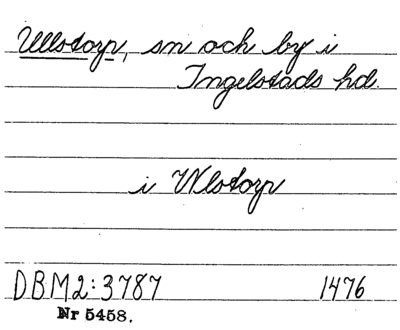 Ullstorp, sn och by i
Ingelstads hd.
i Wlstorp
DBM2:3787 1476
Nr 5458.